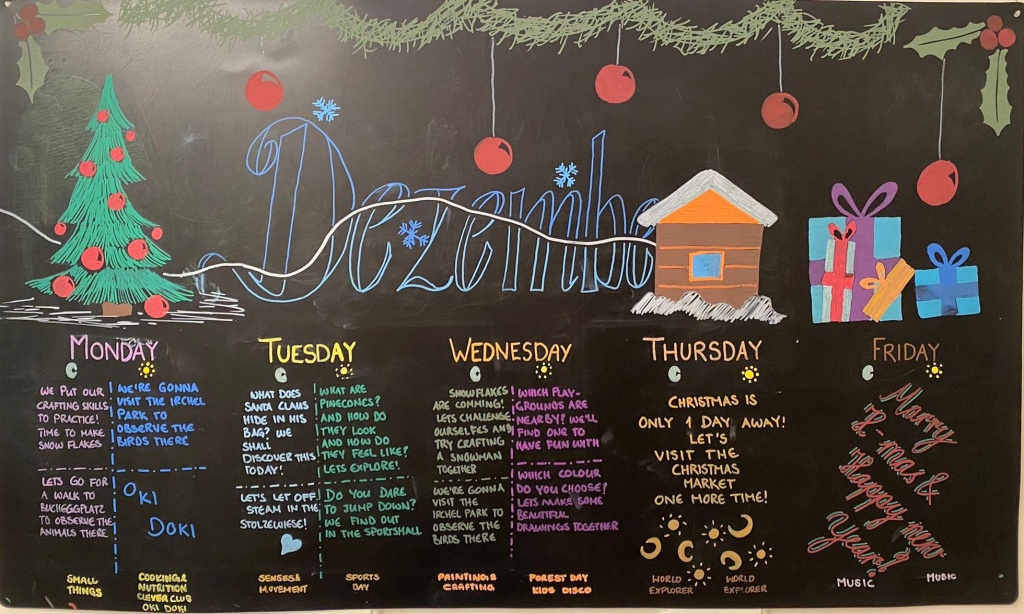 Dezembe
MONDAY
WE PUT OUR
CRAFTING SKILLS
TO PRACTICE!
TIME TO MAKE
SNOW FLAKES
WE'RE GONNA
VISIT THE IRCHEL
PARK TO
OBSERVE THE
BIRDS THERE
LETS GO FOR
A WALK TO
BUCHEGGPLATZ
TO OBSERVE THE
ANIMALS THERE
OKI
DOKI
SMALL
THINGS
COOKING &
NUTRITION
CLEVER CLUB
OKI DOKI
TUESDAY
WHAT DOES
SANTA CLAUS
HIDE IN HIS
BAG? WE
SHALL
DISCOVER THIS
TODAY!
WHAT ARE
PINECONES?
AND HOW DO
THEY LOOK
AND HOW DO
THEY FEEL LIKE?
LETS EXPLORE!
LET'S LET OFF
STEAM IN THE
STOLZEWIESE!
DO YOU DARE
TO JUMP DOWN?
WE FIND OUT
IN THE SPORTSHALL
SENSES &
MOVEMENT
SPORTS
DAY
WEDNESDAY
SNOWFLAKES
ARE COMMING!
LETS CHALLENGE
OURSELFES AND
TRY CRAFTING
A SNOWMAN
TOGETHER
WHICH PLAY-
GROUNDS ARE
NEARBY? WE'LL
FIND ONE TO
HAVE FUN WITH
WE'RE GONNA
VISIT THE
IRCHEL PARK TO
OBSERVE THE
BIRDS THERE
WHICH COLOUR
DO YOU CHOOSE?
LETS MAKE SOME
BEAUTIFUL
DRAWINGS TOGETHER
PAINTING &
CRAFTING
FOREST DAY
KIDS DISCO
THURSDAY
CHRISTMAS IS
ONLY 1 DAY AWAY!
LET'S
VISIT THE
CHRISTMAS
MARKET
ONE MORE TIME!
WORLD
EXPLORER
WORLD
EXPLORER
FRIDAY
Marry
X-mas &
Happy new
Year!
MUSIC
MUSIC